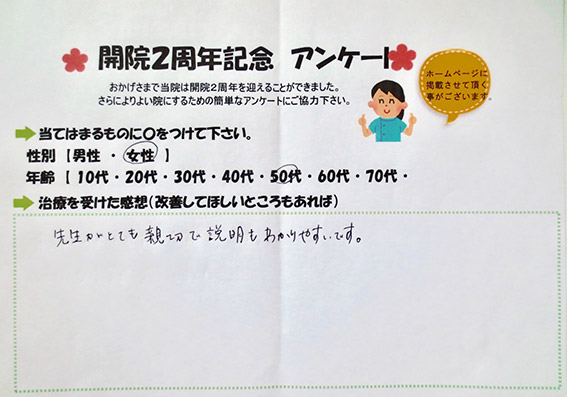 開院2周年記念 アンケート
おかげさまで当院は開院2周年を迎えることができました。
さらによりよい院にするための簡単なアンケートにご協力下さい。
ホームページに
掲載させて頂く
事がございます。
当てはまるものに〇をつけて下さい。
性別【男性 ・ 女性 】
年齢【 10代・20代・30代・40代・50代・60代・70代・
治療を受けた感想(改善してほしいところもあれば)
先生がとても親切で説明もわかりやすいです。